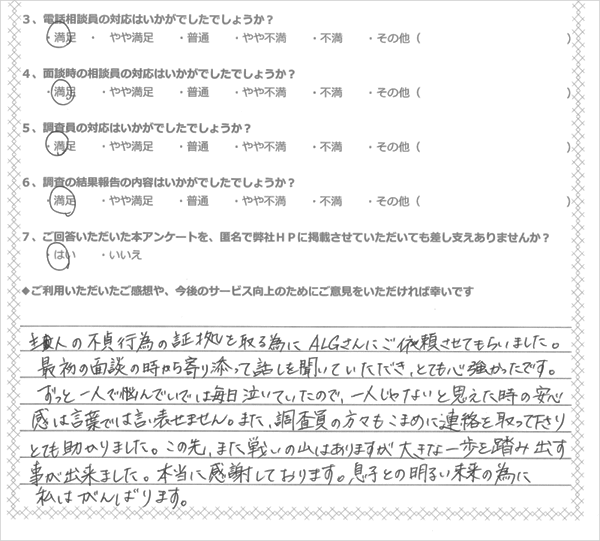 3、電話相談員の対応はいかがでしたでしょうか？
・満足 ・ やや満足 ・普通 ・やや不満 ・不満 ・その他（ ）
4、面談時の相談員の対応はいかがでしたでしょうか？
・満足 ・やや満足 ・普通 ・やや不満 ・不満 ・その他（ ）
5、調査員の対応はいかがでしたでしょうか？
・満足 ・やや満足 ・普通 ・やや不満 ・不満 ・その他（ ）
6、調査の結果報告の内容はいかがでしたでしょうか？
・満足 ・やや満足 ・普通 ・やや不満 ・不満 ・その他（ ）
7、ご回答いただいた本アンケートを、匿名で弊社ＨＰに掲載させていただいても差し支えありませんか？
・はい ・いいえ
◆ご利用いただいたご感想や、今後のサービス向上のためにご意見をいただければ幸いです
主人の不貞行為の証拠を取る為にALGさんにご依頼させてもらいました。
最初の面談の時から寄り添って話しを聞いていただき、とても心強かったです。
ずっと一人で悩んでいては毎日泣いていたので、一人じゃないと思えた時の安心
感は言葉では言い表せません。また、調査員の方々もこまめに連絡を取って下さり
とても助かりました。この先、また戦いの山はありますが大きな一歩を踏み出す
事が出来ました。本当に感謝しております。息子との明るい未来の為に
私はがんばります。